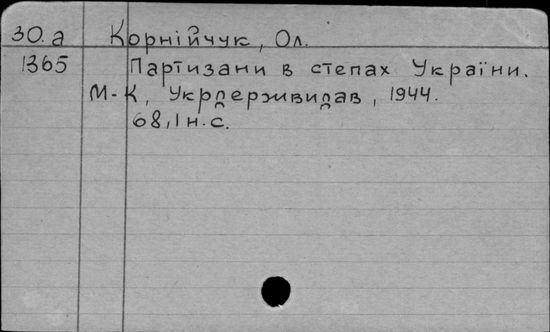 30.а Корнійчук, Ол.
1365 Партизани в степах України.
М-К, Укрдержвидав, 1944.
68,1н.с.